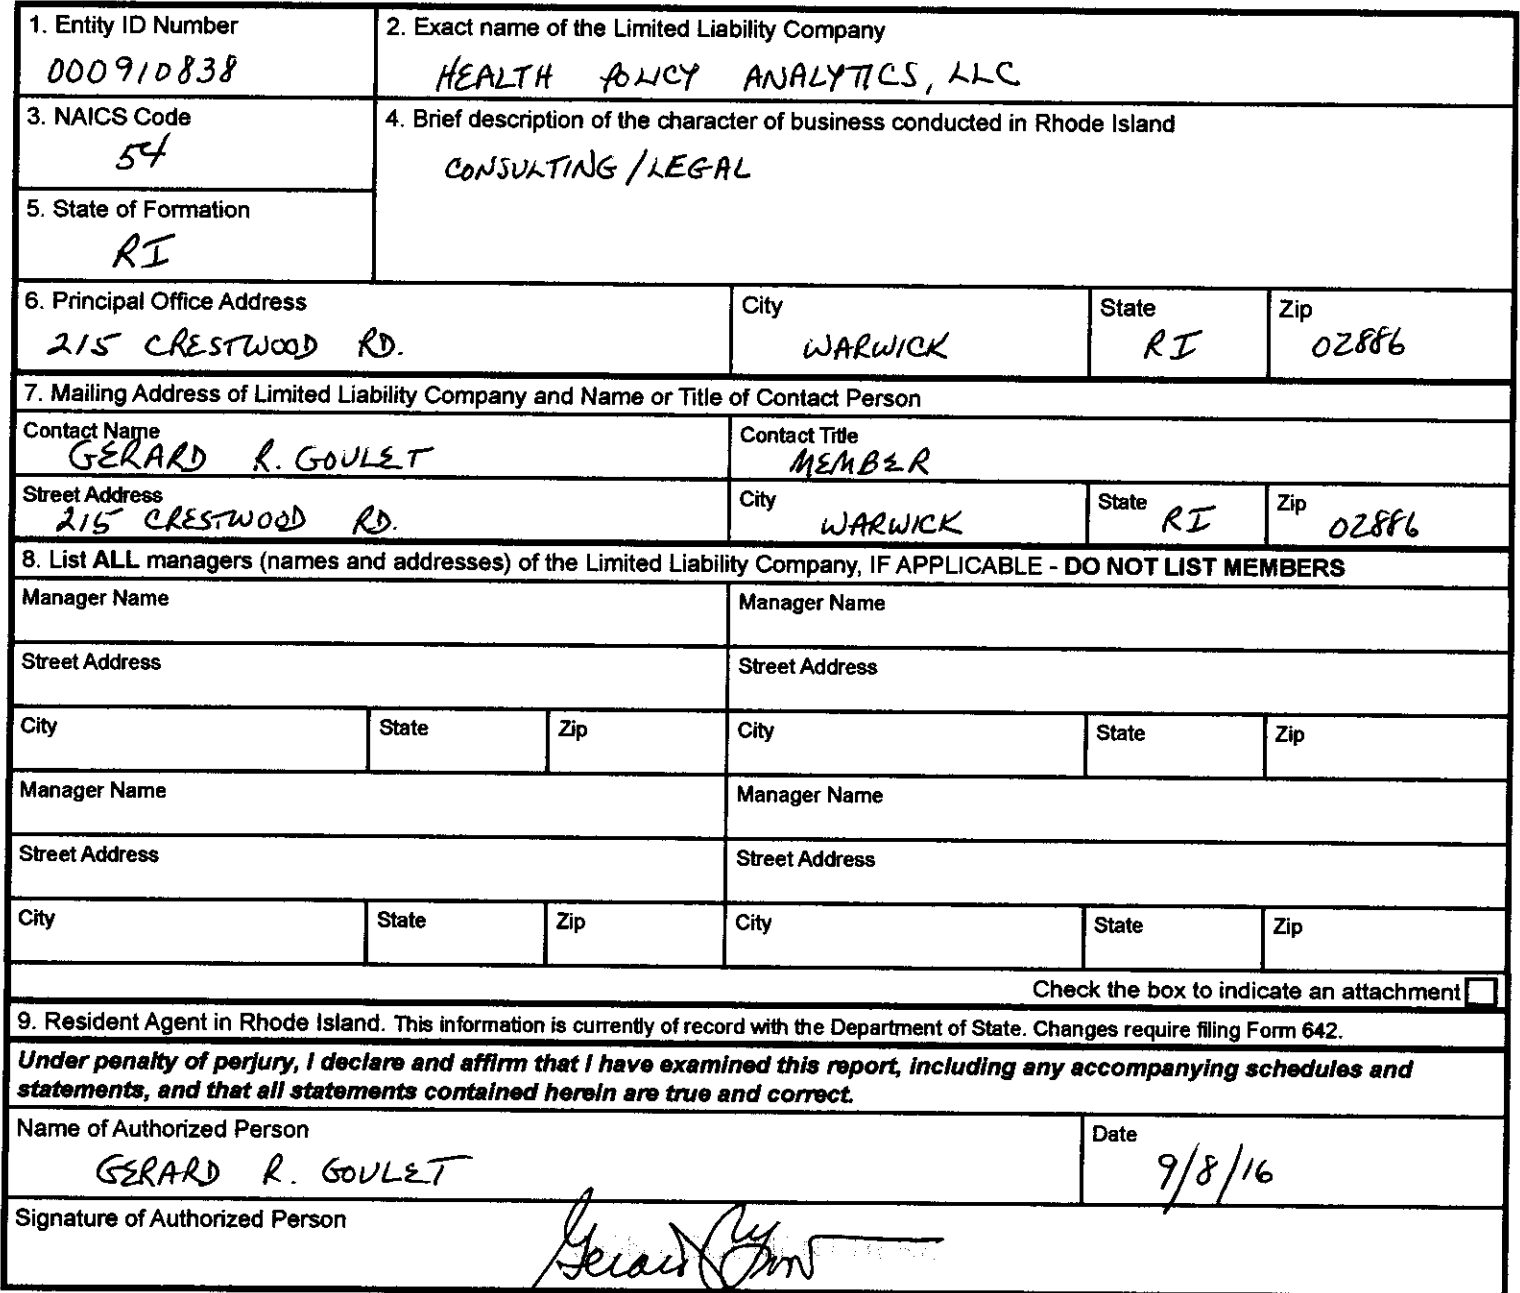 1. Entity ID Number
000910838
2. Exact name of the Limited Liability Company
HEALTH POLICY ANALYTICS, LLC
3. NAICS Code
54
4. Brief description of the character of business conducted in Rhode Island
CONSULTING/LEGAL
5. State of Formation
RI
6. Principal Office Address
215 CRESTWOOD RD.
City
WARWICK
State
RI
Zip
02886
7. Mailing Address of Limited Liability Company and Name or Title of Contact Person
Contact Name
GERARD R. GOULET
Contact Title
MEMBER
Street Address
215 CRESTWOOD RD.
City
WARWICK
State RI
Zip
02886
8. List ALL managers (names and addresses) of the Limited Liability Company, IF APPLICABLE - DO NOT LIST MEMBERS
Manager Name
Manager Name
Street Address
Street Address
City State Zip City State Zip
Manager Name
Manager Name
Street Address
Street Address
City State Zip City State Zip
Check the box to indicate an attachment
9. Resident Agent in Rhode Island. This information is currently of record with the Department of State. Changes require filing Form 642.
Under penalty of perjury, I declare and affirm that I have examined this report, including any accompanying schedules and
statements, and that all statements contained herein are true and correct.
Name of Authorized Person
GERARD R. GOULET
Date
9/8/16
Signature of Authorized Person
Gerard